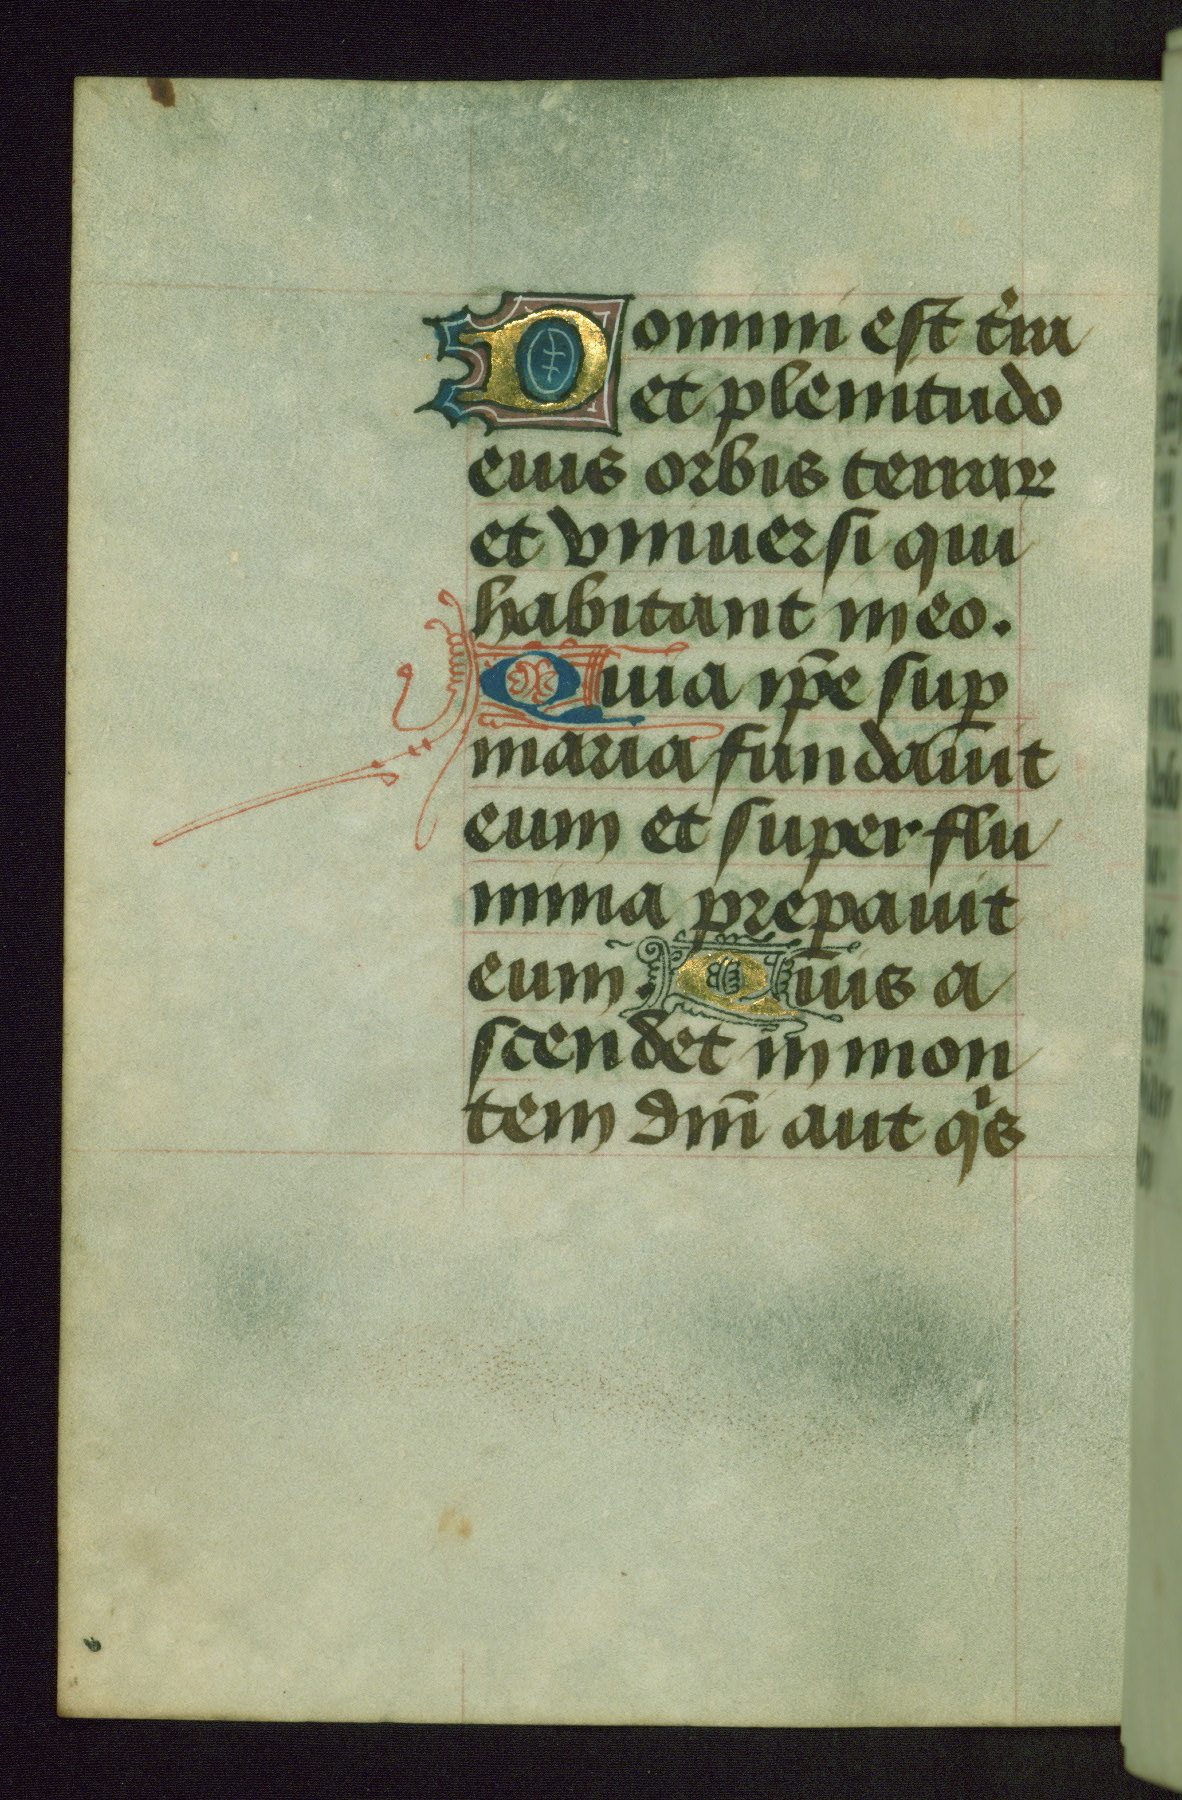 Domini est t̉ra
et plenitudo
eius orbis terrarꝝ
et vniuersi qui
habitant in eo.
Quia ip̄e suꝑ
maria fundauit
eum et super flu
mina prepauit
eum. Quis a
scendet in mon
tem dn̄i aut qͥs